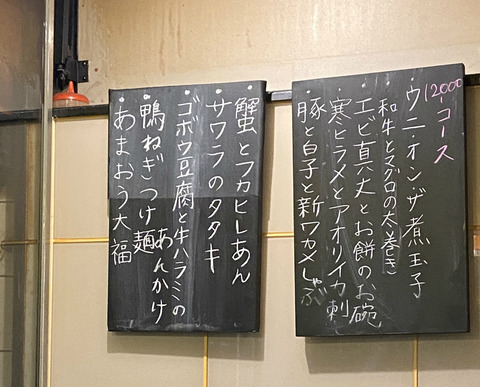 12000-コース
・ウニ・オン・ザ・煮玉子
・和牛とマグロの太巻き
・エビ真丈とお餅のお碗
・寒ヒラメとアオリイカ刺
・豚と白子と新ワカメしゃぶ
・蟹とフカヒレあん
・サワラのタタキ
・ゴボウ豆腐と牛ハラミのあんかけ
・鴨ねぎつけ麺
・あまおう大福